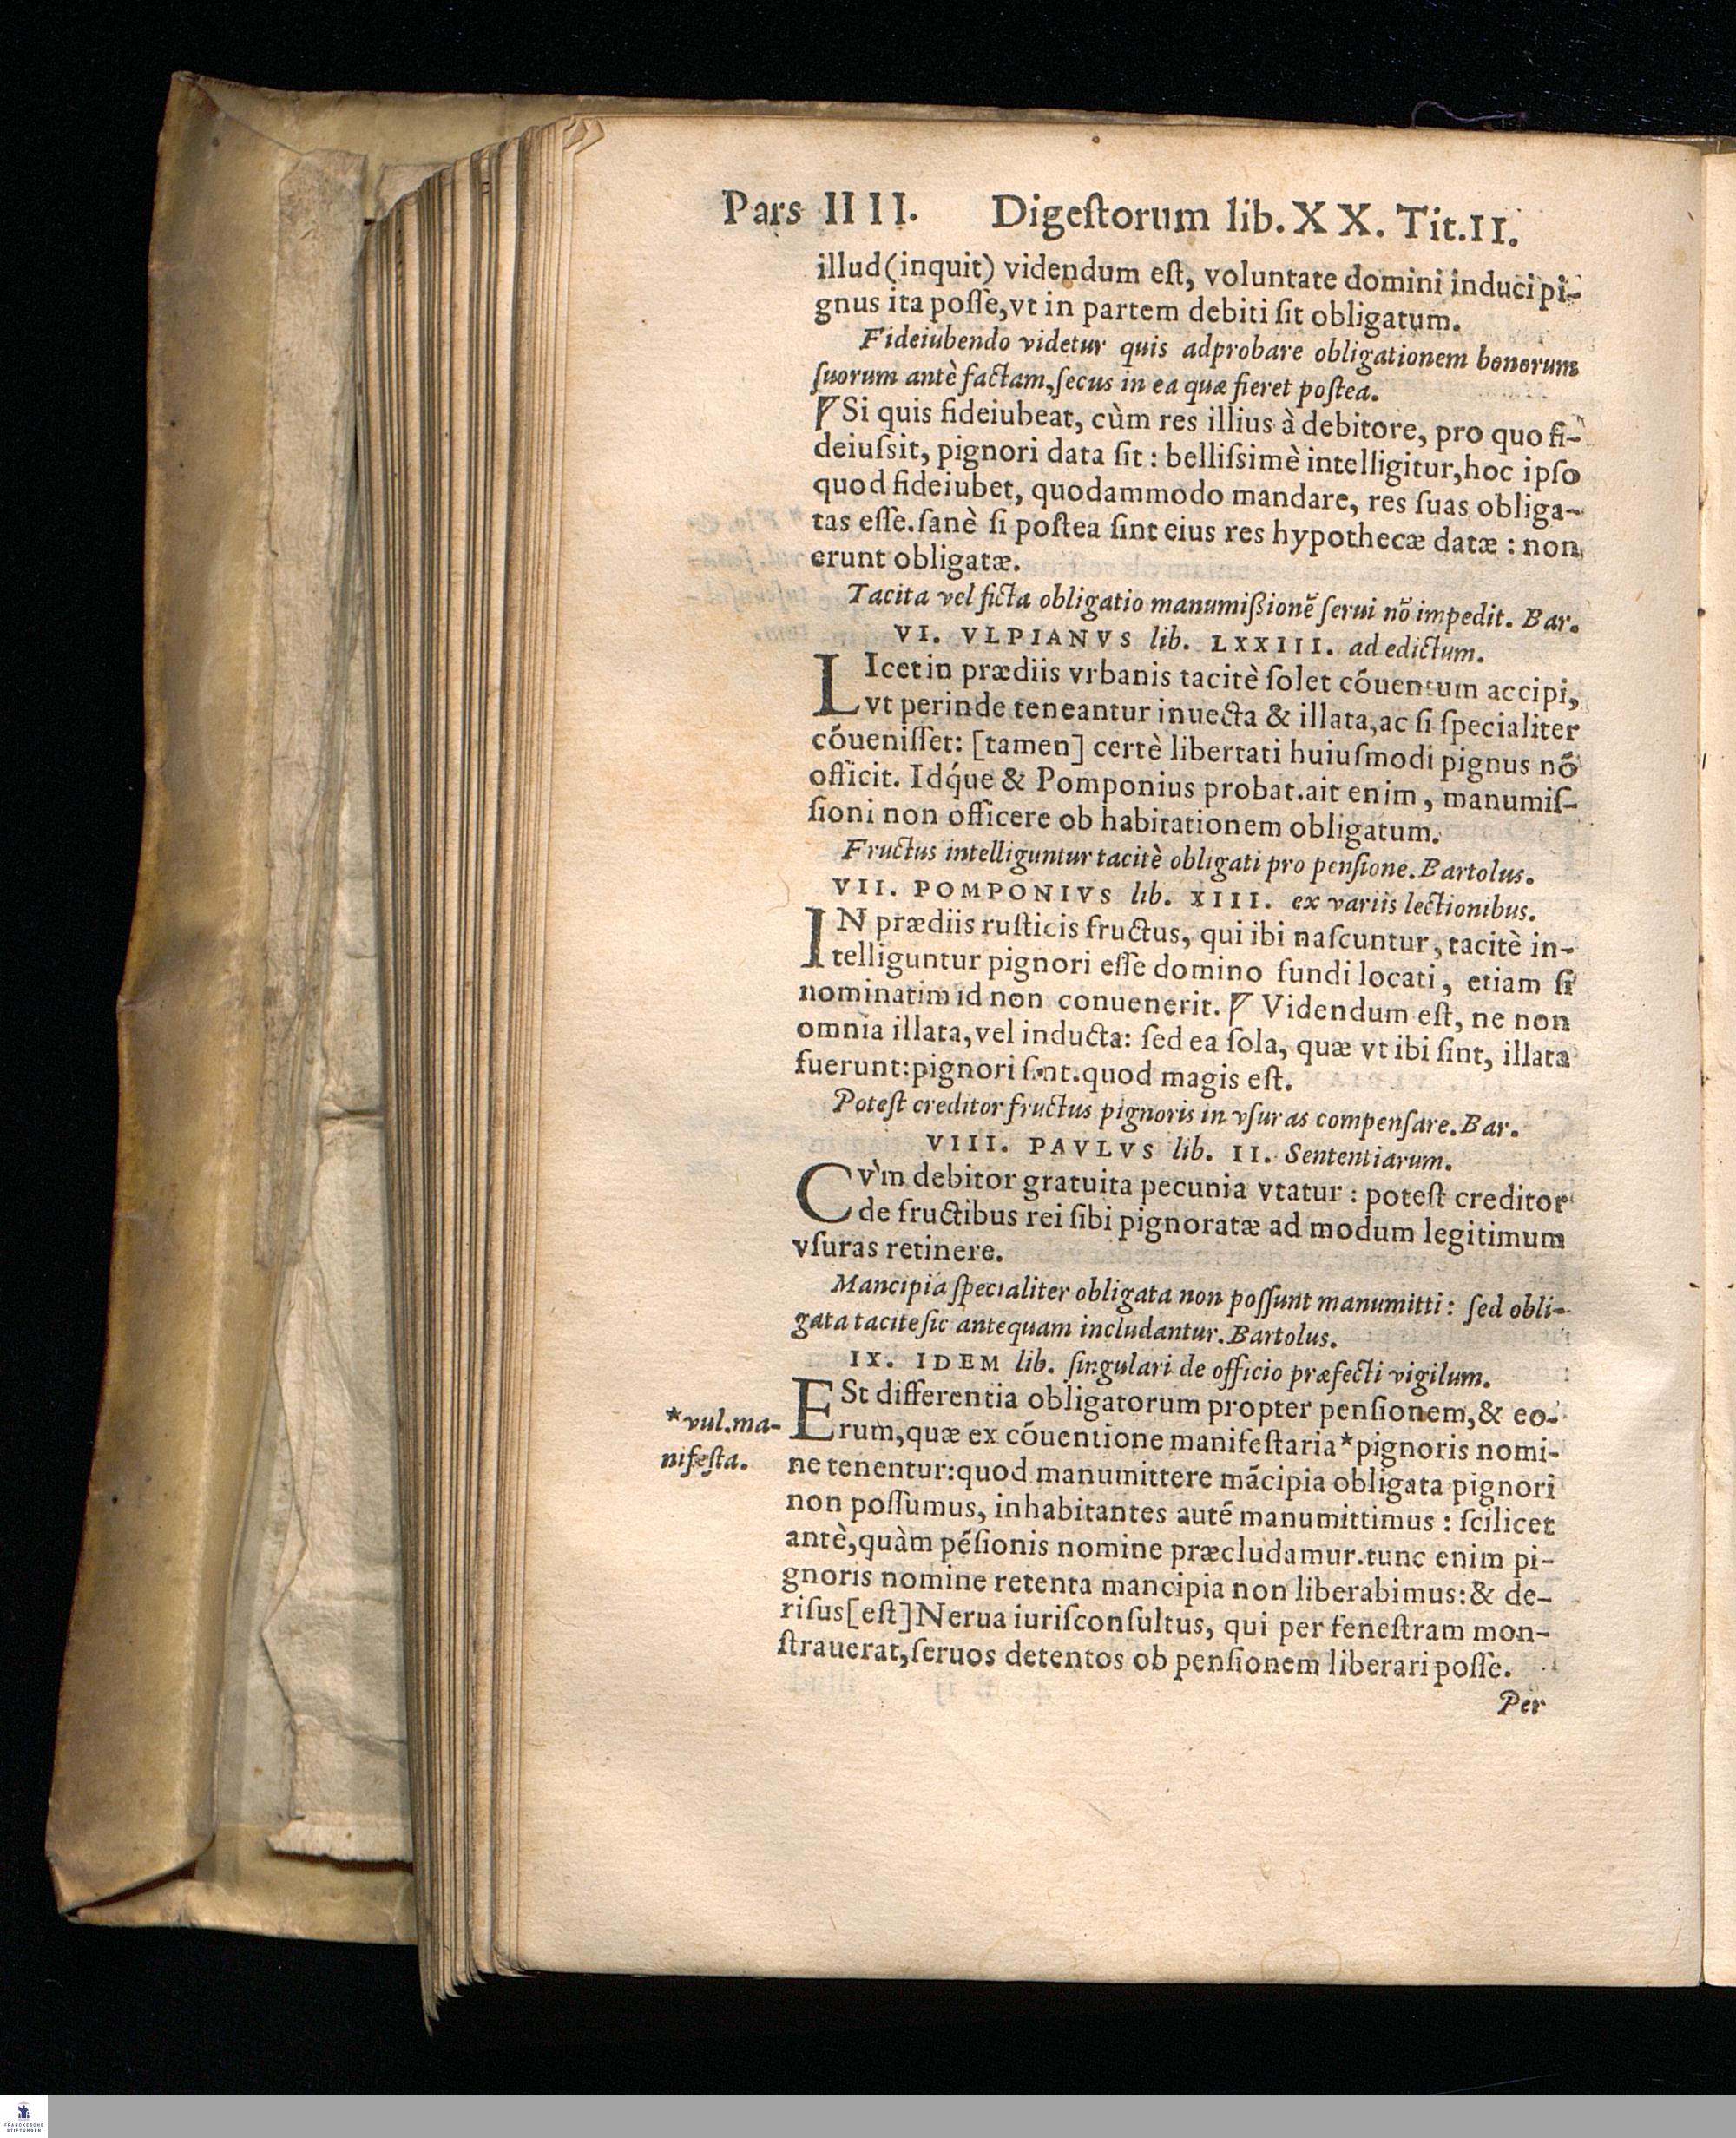 Pars IIII. Digeſtorum lib. XX. Tit. II.
illud (inquit) videndum eſt, voluntate domini induci pi-
gnus ita poſſe, vt in partem debiti ſit obligatum.
Fideiubendo videtur quis adprobare obligationem bonorum
ſuorum antè factam, ſecus in ea quæ fieret poſtea.
Si quis fideiubeat, cùm res illius à debitore, pro quo fi-
deiuſsit, pignori data ſit: belliſsimè intelligitur, hoc ipſo
quod fideiubet, quodammodo mandare, res ſuas obliga-
tas eſſe. ſanè ſi poſtea ſint eius res hypothecæ datæ: non
erunt obligatæ.
Tacita vel ficta obligatio manumißionẽ ſerui nõ impedit. Bar.
VI. VLPIANVS lib. LXXIII. ad edictum.
LIcet in prædiis vrbanis tacitè ſolet cõuentum accipi,
vt perinde teneantur inuecta & illata, ac ſi ſpecialiter
cõueniſſet: [tamen] certè libertati huiuſmodi pignus nõ
officit. Idq́ue & Pomponius probat. ait enim, manumiſ-
ſioni non officere ob habitationem obligatum.
Fructus intelliguntur tacitè obligati pro penſione. Bartolus.
VII. POMPONIVS lib. XIII. ex variis lectionibus.
IN prædiis ruſticis fructus, qui ibi naſcuntur, tacitè in-
telliguntur pignori eſſe domino fundi locati, etiam ſi
nominatim id non conuenerit. Videndum eſt, ne non
omnia illata, vel inducta: ſed ea ſola, quæ vt ibi ſint, illata
fuerunt: pignori ſint. quod magis eſt.
Poteſt creditor fructus pignoris in vſuras compenſare. Bar.
VIII. PAVLVS lib. II. Sententiarum.
CV̀m debitor gratuita pecunia vtatur: poteſt creditor
de fructibus rei ſibi pignoratæ ad modum legitimum
vſuras retinere.
Mancipia ſpecialiter obligata non poſſunt manumitti: ſed obli-
gata tacite ſic antequam includantur. Bartolus.
IX. IDEM lib. ſingulari de officio præfecti vigilum.
ESt differentia obligatorum propter penſionem, & eo-
rum, quæ ex cõuentione manifeſtaria* pignoris nomi-
ne tenentur: quod manumittere mãcipia obligata pignori
non poſſumus, inhabitantes autẽ manumittimus: ſcilicet
antè, quàm pẽſionis nomine præcludamur. tunc enim pi-
gnoris nomine retenta mancipia non liberabimus: & de-
riſus [eſt] Nerua iuriſconſultus, qui per feneſtram mon-
ſtrauerat, ſeruos detentos ob penſionem liberari poſſe.
*vul. ma-
nifeſta.
Per
FRANCKESCHE
STIFTUNGEN